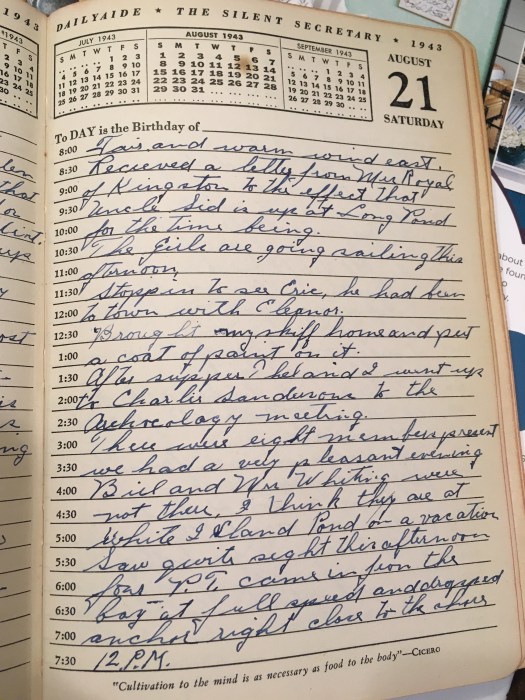 DAILYAIDE * THE SILENT SECRETARY * 1943
JULY 1943
S M T W T F S
1 2 3
4 5 6 7 8 9 10
11 12 13 14 15 16 17
18 19 20 21 22 23 24
25 26 27 28 29 30 31
AUGUST 1943
S M T W T F S
1 2 3 4 5 6 7
8 9 10 11 12 13 14
15 16 17 18 19 20 21
22 23 24 25 26 27 28
29 30 31
SEPTEMBER 1943
S M T W T F S
1 2 3 4
5 6 7 8 9 10 11
12 13 14 15 16 17 18
19 20 21 22 23 24 25
26 27 28 29 30
AUGUST
21
SATURDAY
To DAY is the Birthday of
8:00 Fair and warm wind east.
8:30 Recieved a letter from Mr Royal
9:00 of Kingston to the effect that
9:30 Uncle Sid is up at Long Pond
10:00 for the time being.
10:30 The Girls are going sailing this
11:00 afternoon,
11:30 Stopp in to see Eric, he had been
12:00 to town with Eleanor.
12:30 Brought my skiff home and put
1:00 a coat of paint on it.
1:30 After supper Thel and I went up
2:00 to Charlie Sandersons to the
2:30 Archeology meeting.
3:00 There were eight members present
3:30 we had a very pleasant evening
4:00 Bill and Mrs Whiting were
4:30 not there, I think they are at
5:00 White Island Pond on a vacation
5:30 Saw quite sight this afternoon
6:00 four P.T. came in from the
6:30 bay at full speed and dropped
7:00 anchor right close to the shore
7:30 12. P.M.
"Cultivation to the mind is as necessary as food to the body"—CICERO